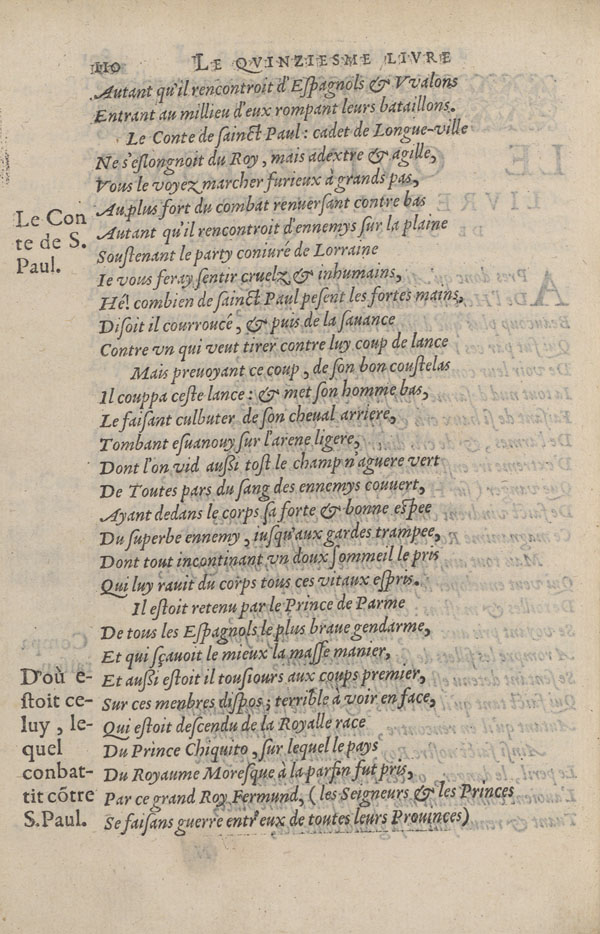 110 LE QVINZIESME LIVRE
Autant qu'il rencontroit d'Eſpagnols & Vvalons
Entrant au millieu d'eux rompant leurs bataillons.
Le Conte de ſainct Paul: cadet de Longue-ville
Ne s'eſlongnoit du Roy, mais adextre & agille,
Vous le voyez marcher furieux à grands pas,
Au plus fort du combat renuerſant contre bas
Autant qu'il rencontroit d'ennemys ſur la plaine
Souſtenant le party coniuré de Lorraine
Ie vous feray ſentir cruelz & inhumains,
Hé! combien de ſainct Paul peſent les fortes mains,
Diſoit il courroucé, & puis de la ſauance
Contre vn qui veut tirer contre luy coup de lance
Mais preuoyant ce coup, de ſon bon couſtelas
Il couppa ceſte lance: & met ſon homme bas,
Le faiſant culbuter de ſon cheual arriere,
Tombant eſuanouy ſur l'arene ligere,
Dont l'on vid auſſi toſt le champ n'aguere vert
De Toutes pars du ſang des ennemys couuert,
Ayant dedans le corps ſa forte & bonne eſpee
Du ſuperbe ennemy, iuſqu'aux gardes trampee,
Dont tout incontinant vn doux ſommeil le pris
Qui luy rauit du corps tous ces vitaux eſpris.
Il eſtoit retenu par le Prince de Parme
De tous les Eſpagnols le plus braue gendarme,
Et qui ſçauoit le mieux la maſſe manier,
Et auſſi eſtoit il touſiours aux coups premier,
Sur ces menbres diſpos; terrible à voir en face,
Qui eſtoit deſcendu de la Royalle race
Du Prince Chiquito, ſur lequel le pays
Du Royaume Moreſque à la parfin fut pris,
Par ce grand Roy Fermund, (les Seigneurs & les Princes
Se faiſans guerre entr'eux de toutes leurs Prouinces)
Le Con
te de S.
Paul.
D'où e-
ſtoit ce-
luy, le-
quel
conbat-
tit cõtre
S. Paul.